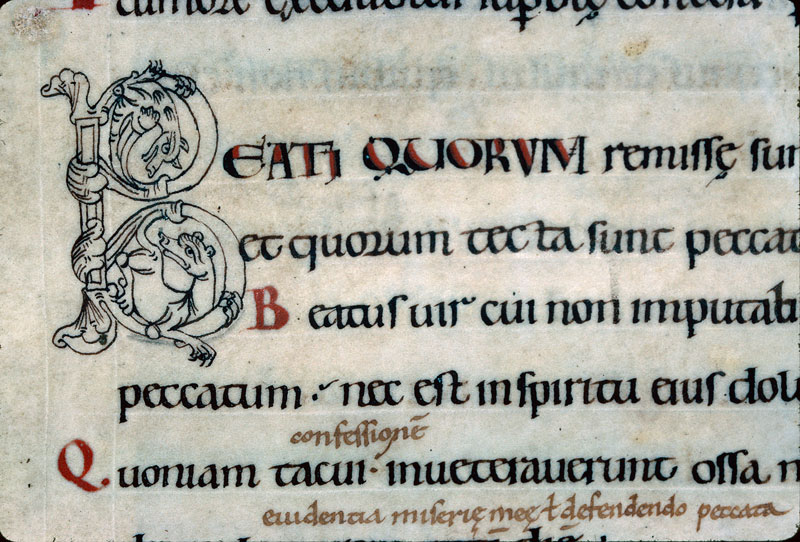 BEATI QUORUM remissę sun
et quorum tecta sunt peccat
Beatus uir cui non imputabi
peccatum· nec est in spiritu eius dolu
confessionē
Quoniam tacui· inueterauerunt ossa m
euidentia miserię meę ł defendendo peccata